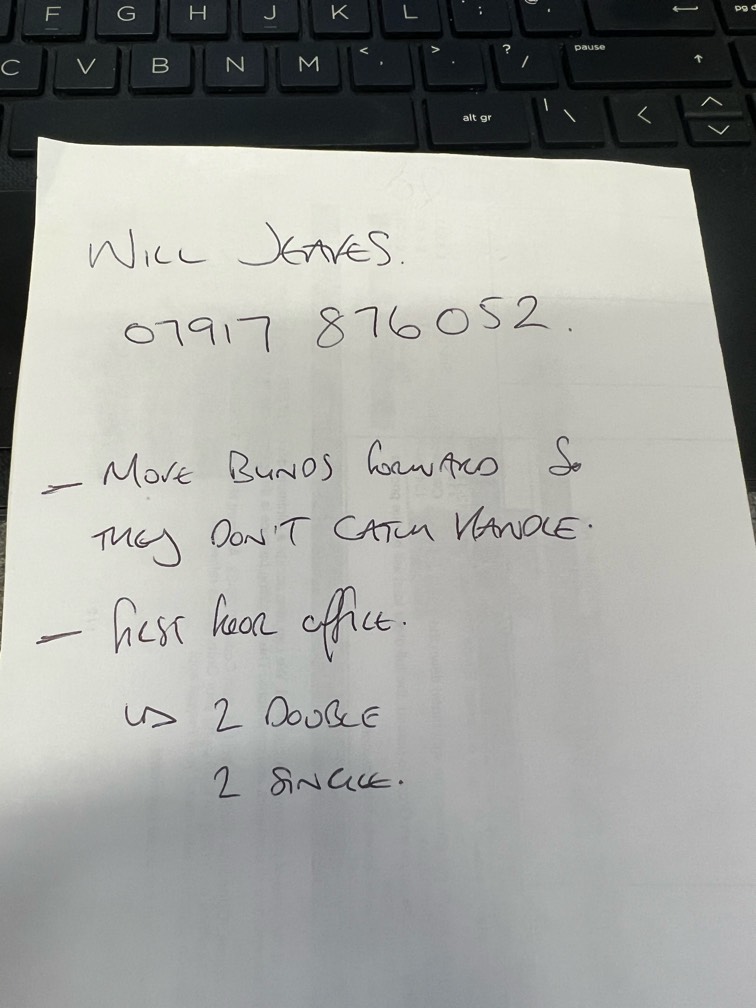 F G H J K L : ; @ pg
C V B N M < , > . ? / pause
alt gr | \
WILL JEAVES.
07917 876052.
- MOVE BLINDS FORWARD SO
THEY DON'T CATCH HANDLE.
- FIRST FLOOR OFFICE.
↳ 2 DOUBLE
2 SINGLE.